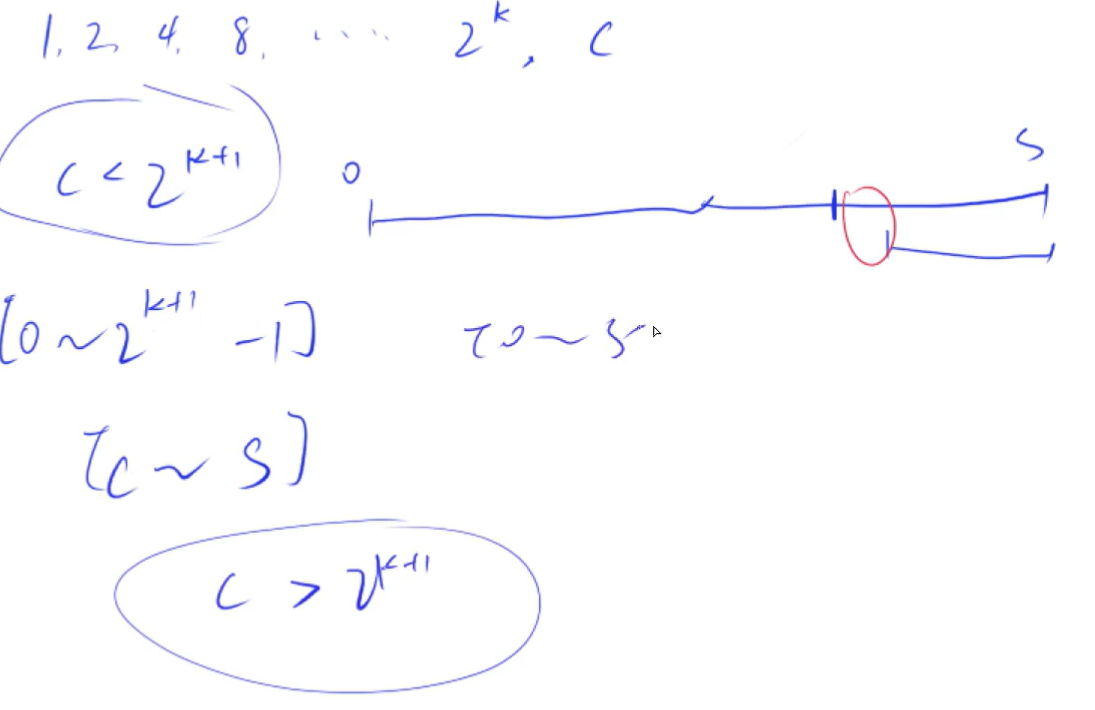 1, 2, 4, 8, ..... 2^k, C
C < 2^{k+1}
0 S
[0 ~ 2^{k+1} - 1] [0 ~ S
[C ~ S]
C > 2^{k+1}